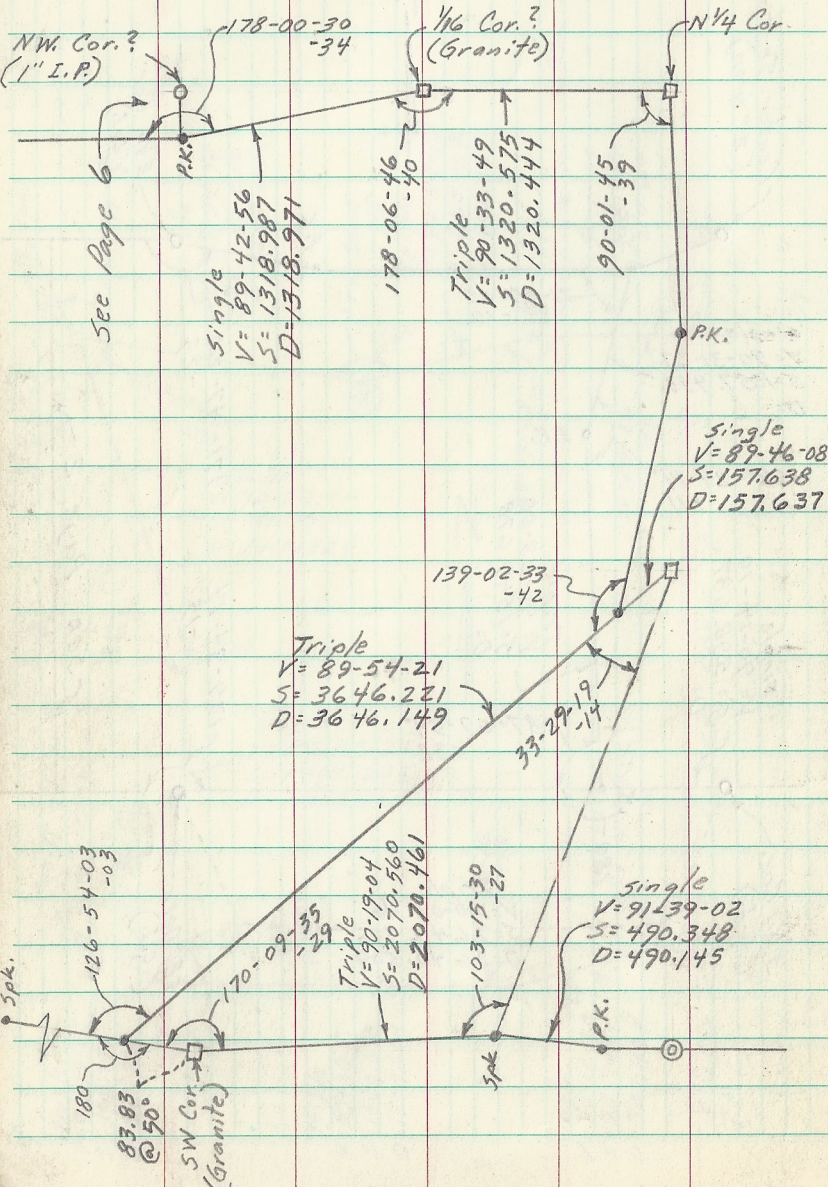 NW. Cor.?
(1" I.P.)
178-00-30
-34
1/16 Cor.?
(Granite)
N 1/4 Cor.
P.K.
See Page 6
Single
V= 89-42-56
S= 1318.987
D=1318.971
178-06-46
-40
Triple
V= 90-33-49
S= 1320.575
D= 1320.444
90-01-45
-39
P.K.
Single
V= 89-46-08
S=157.638
D=157.637
139-02-33
-42
Triple
V= 89-54-21
S= 3646.221
D= 3646.149
33-29-19
-14
Spk.
126-54-03
-03
170-09-35
-29
Triple
V= 90-19-04
S= 2070.560
D= 2070.461
103-15-30
-27
Single
V= 91-39-02
S= 490.348
D= 490.145
P.K.
Spk
180
83.83
@ 50°
SW Cor.
(Granite)